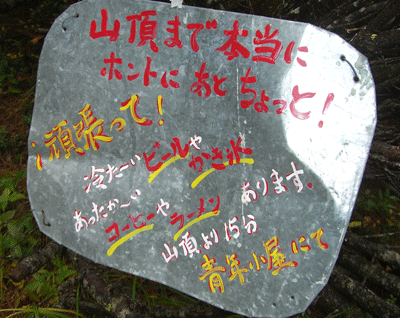 山頂まで本当に
ホントにあとちょっと!
頑張って!
冷た〜いビールやかき氷
あったか〜いコーヒーやラーメン
あります。
山頂より15分
青年小屋にて